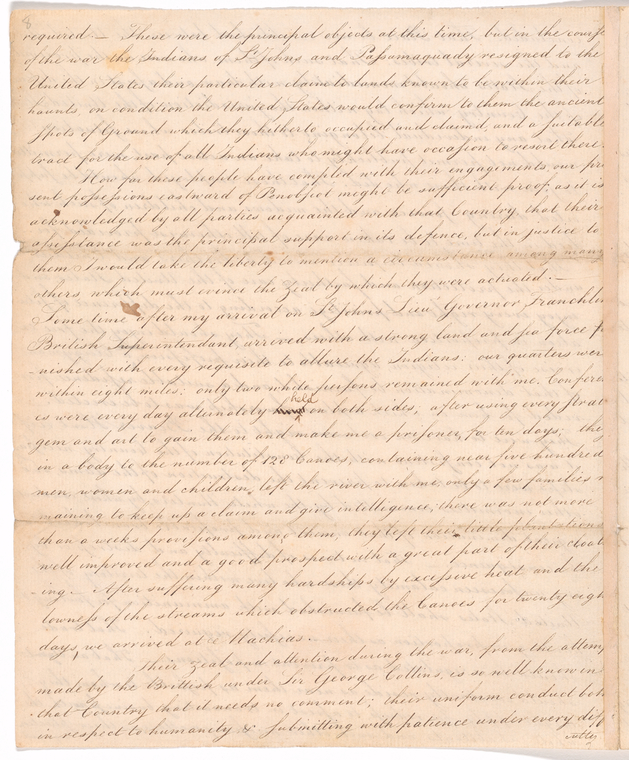 8
required.— These were the principal objects at this time, but in the cours
of the war the Indians of St. Johns and Passamaquady resigned to the
United States their particular claim to lands known to be within their
haunts, on condition the United States would confirm to them the ancient
Spots of Ground which they hitherto occupied and claimd, and a suitable
tract for the use of all Indians who might have occasion to resort there.
How far these people have complied with their engagements, our pre
sent possessions eastward of Penobscot might be sufficient proof, as it is
acknowledged by all parties acquainted with that Country, that their
assistance was the principal support in its defence, but in justice to
them I would take the liberty to mention a circumstance among many
others, which must evince the Zeal by which they were actuated.—
Some time after my arrival on St. Johns Lieu Governor Franchlin
British Superentendant arrived with a strong land and sea force f
-nished with every requisite to allure the Indians: our quarters wer
within eight miles: only two white persons remained with me. Conferen
es were every day alturnatoly held on both sides; after using every Strat
gem and art to gain them and make me a prisoner, for ten days; they
in a body to the number of 128 Canoes, containing near five hundred
men, women and children, left the river with me, only a few families r
maining to keep up a claim and give intelligence; there was not more
than a weeks provesions among them, they left their little
well improved and a good prospect with a great part of their cloat
-ing. After suffering many hardships by excessive heat and the
lowness of the streams which obstructed the Canoes for twenty eigh
days, we arrived at Machias.
Their Zeal and attention during the war, from the attemp
made by the Brittish under Sir George Collins, is so well known in
that Country that it needs no comment; their uniform conduct both
in respect to humanity & submitting with patience under every diff